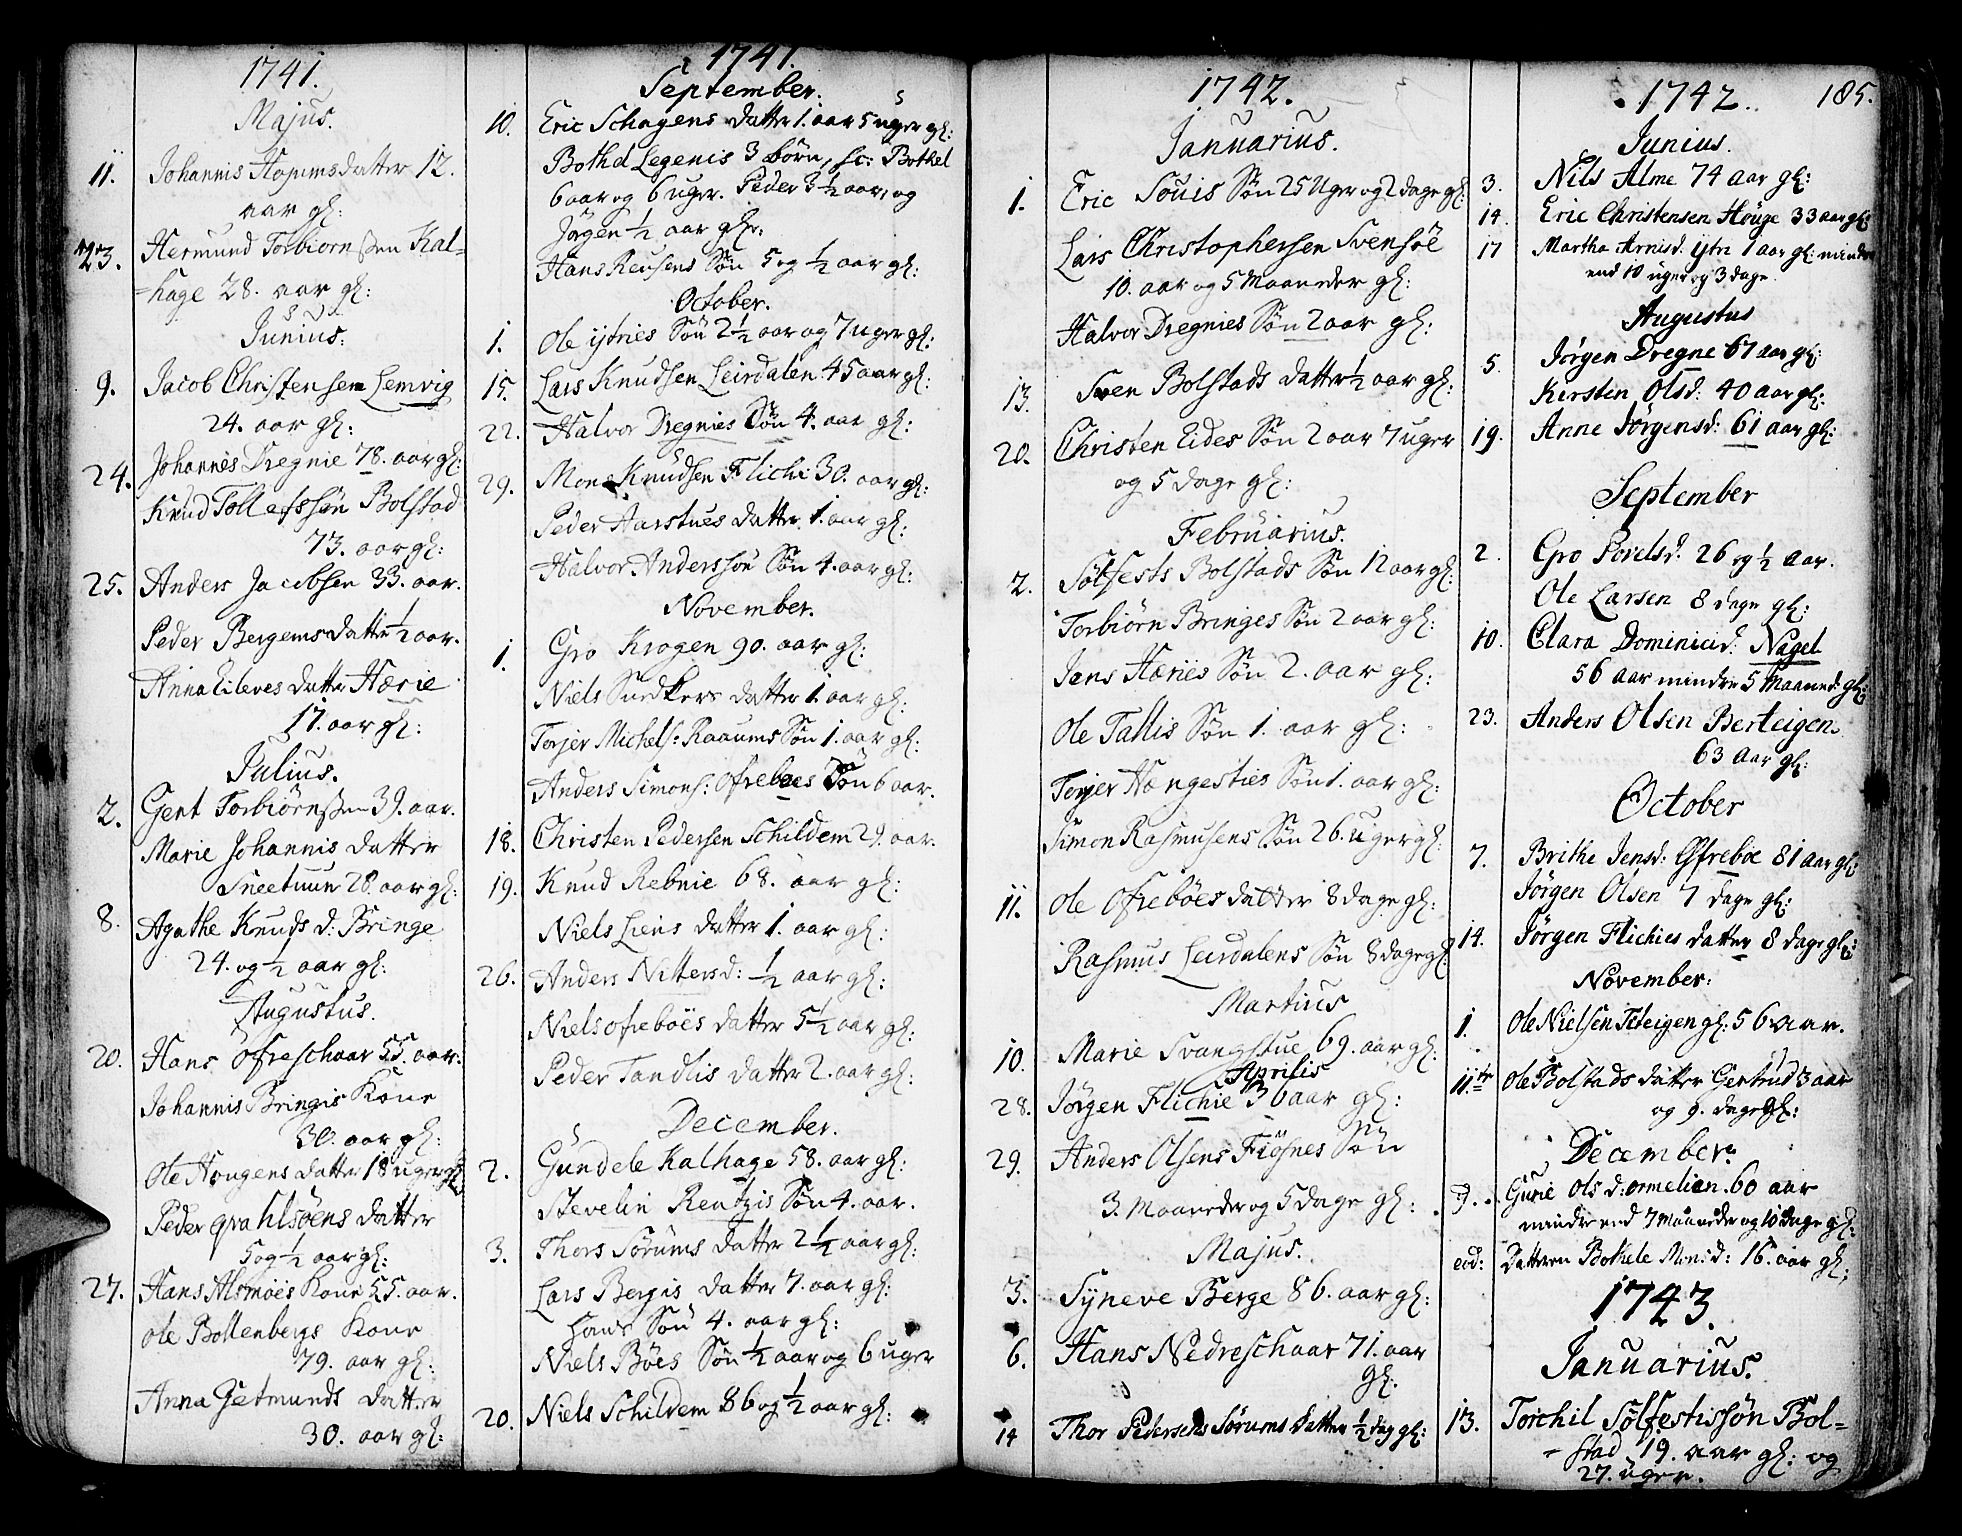 1741.
Majus.
11. Johannis Hopums datter 12.
aar gl:
23. Hermund Torbiornssen Kal=
=hage 28. aar gl:
Junius.
9. Jacob Christensen Lemvig
24. aar gl:
24. Johannes Dregnie 78. aar gl:
Knud Tollefssøn Bolstad
73. aar gl:
25. Anders Jacobsen 33. aar.
Peder Bergems datter ½ aar.
Anna Eileves datter Hærie
17. aar gl:
Julius.
2. Gert Torbiörnssen 39. aar.
Marie Johannis datter
Sneetuun 28. aar gl:
8. Agathe Knuds d: Bringe
24. og ½ aar gl:
Augustus.
20. Hans Ofreschaar 55. aar.
Johannis Bringis Kone
30. aar gl:
Ole Hougens datter 18 uger gl:
Peder qvahlsöens datter
5 og ½ aar gl:
27. Hans Alsmoes Kone 55. aar.
Ole Bollenbergs Kone
79. aar gl:
Anna Getmunds datter
30. aar gl:
1741.
September.
10. Eric Schagens datter 1. aar 5 uger gl:
Bothel Legenis 3 börn, sc: Bothel
6 aar og 6 uger. Peder 3½ aar, og
Jörgen ½ aar gle:
Hans Reusens Sön 5 og ½ aar gl:
October.
1. Ole ijtries Sön 2½ aar og 7 uger gl:
15. Lars Knudsen Leirdalen 45 aar gl:
22. Halvor Dregnies Sön 4. aar gl:
29. Mons Knudsen Flichi 30. aar gl:
Peder Aarstues datter 1. aar gl:
Halvor Anderssön Sön 4. aar gl:
November.
1. Gro Krogen 90. aar gl:
Niels Snedkers datter 1. aar gl:
Torjer Michels: Raaums Sön 1. aar gl:
Anders Simons: Ofreboes Sön 6 aar.
18. Christen Pedersen Schildem 29. aar.
19. Knud Rebnie 68. aar gl:
Niels Liens datter 1. aar gl:
26. Anders Nittersd: ½ aar gl:
Niels ofreböes datter 5½ aar gl:
Peder Tandlis datter 2. aar gl:
December.
2. Gundele Kalhage 58. aar gl:
Stevelin Rentzis Sön 4. aar.
3. Thors Sörums datter 2½ aar gl:
Lars Bergis datter 7. aar gl:
Hans Sön 4. aar gl:
Niels Böes Sön ½ aar og 6 uger
20. Niels Schildem 86 og ½ aar gl:
1742.
Januarius.
1. Eric Souis Sön 25 Uger og 2 dage gl:
Lars Christophersen Svensöe
10. aar og 5 Maaneder gl:
Halvor Dregnies Sön 2 aar gl:
13. Sven Bolstads datter ½ aar gl:
20. Christen Eides Sön 2 aar 7 uger
og 5 dage gl:
Februarius.
2. Sölfests Bolstads Sön 12 aar gl:
Torbiörn Bringes Sön 2 aar gl:
Jens Hæries Sön 2. aar gl:
Ole Tallis Sön 1. aar gl:
Torjer Hængesties Sön 1. aar gl:
Simon Rasmusens Sön 26. uger gl:
11. Ole Ofreböes datter 8 dage gl:
Rasmus Leirdalens Sön 8 dage gl:
Martius
10. Marie Svangstue 69. aar gl:
Aprilis
28. Jörgen Flichie 36 aar gl:
29. Anders Olsens Fiösnes Sön
3. Maaneder og 5 dage gl:
Majus.
3. Syneve Berge 86. aar gl:
6. Hans Nedreschaar 71. aar
gl:
14 Thor Pedersens Sörums datter ½ dag gl:
1742. 185.
Junius.
3. Nils Alme 74 aar gl:
14. Eric Christensen Houge 33 aar gl:
17 Martha Arnisd. ijtri 1 aar gl: mindre
end 10 uger og 3 dage.
Augustus
5. Jørgen Dregne 67 aar gl:
Kersten Olsd: 40 aar gl:
19. Anne Jörgensd: 61 aar gl:
September
2. Gro Povelsd: 26 og ½ aar.
Ole Larsen 8 dage gl:
10. Clara Dominicid: Nagel
56 aar mindre 5 Maaned: gl:
23. Anders Olsen Berteigen.
63 aar gl:
October
7. Brithe Jensd: Ofreboe 81 aar gl:
Jörgen Olsen 7 dage gl:
14. Jörgen Flichies datter 8 dage gl:
November.
1. Ole Nielsen Teteigen gl: 56 aar.
11.te Ole Bolstads datter Gertrud 3 aar
og 9. dage gl:
December.
9. Gurie Ols d: ormelien. 60 aar
mindre end 7 Maaneder og 10 dage gl:
eod: Datteren Bothele Monsd: 16. aar gl:
1743.
Januarius.
13. Torchil Sölfestissön Bol=
=stad 19. aar gl: og
27. uger.